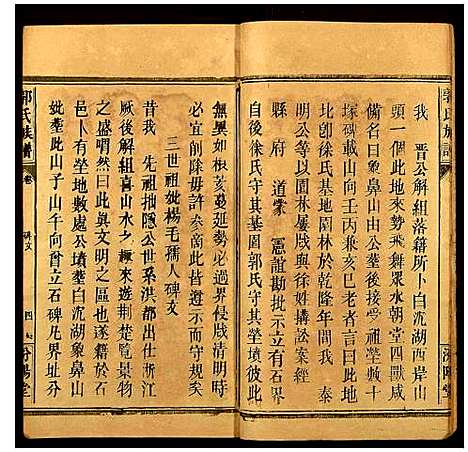 郭氏族譜
我　晋公解組落籍所卜白沉湖西岸山
頭一個此地來勢飛舞眾水朝堂四獸咸
備名曰象鼻山由公塟後接塟數十
塚碑載山向壬丙兼亥巳老者言曰此地
北卽徐氏基地園林於乾隆年間我　泰
明公等以園林屢戕與徐姓搆訟案經
縣　府　道蒙　憲諠勘批示立有石界
自後徐氏守其基園郭氏守其塋墳彼此
汾陽堂
無異如椒亥蔓延勢必過界侵戕清明時
必宜削除毋許參商此皆遵示而守規矣
三世祖妣楊毛孺人碑文
昔我　先祖拙隱公世系洪都出仕浙江
厥後解組喜山水之佳概來遊荆楚覽景物
之盛喟然曰此與文明之區也遂籍於石
邑卜有坐地數處公墳塟白沉湖象鼻山
妣塟此山子山午向首立石碑凡界址分
郭氏族譜
卷
碑文
四七
汾陽堂